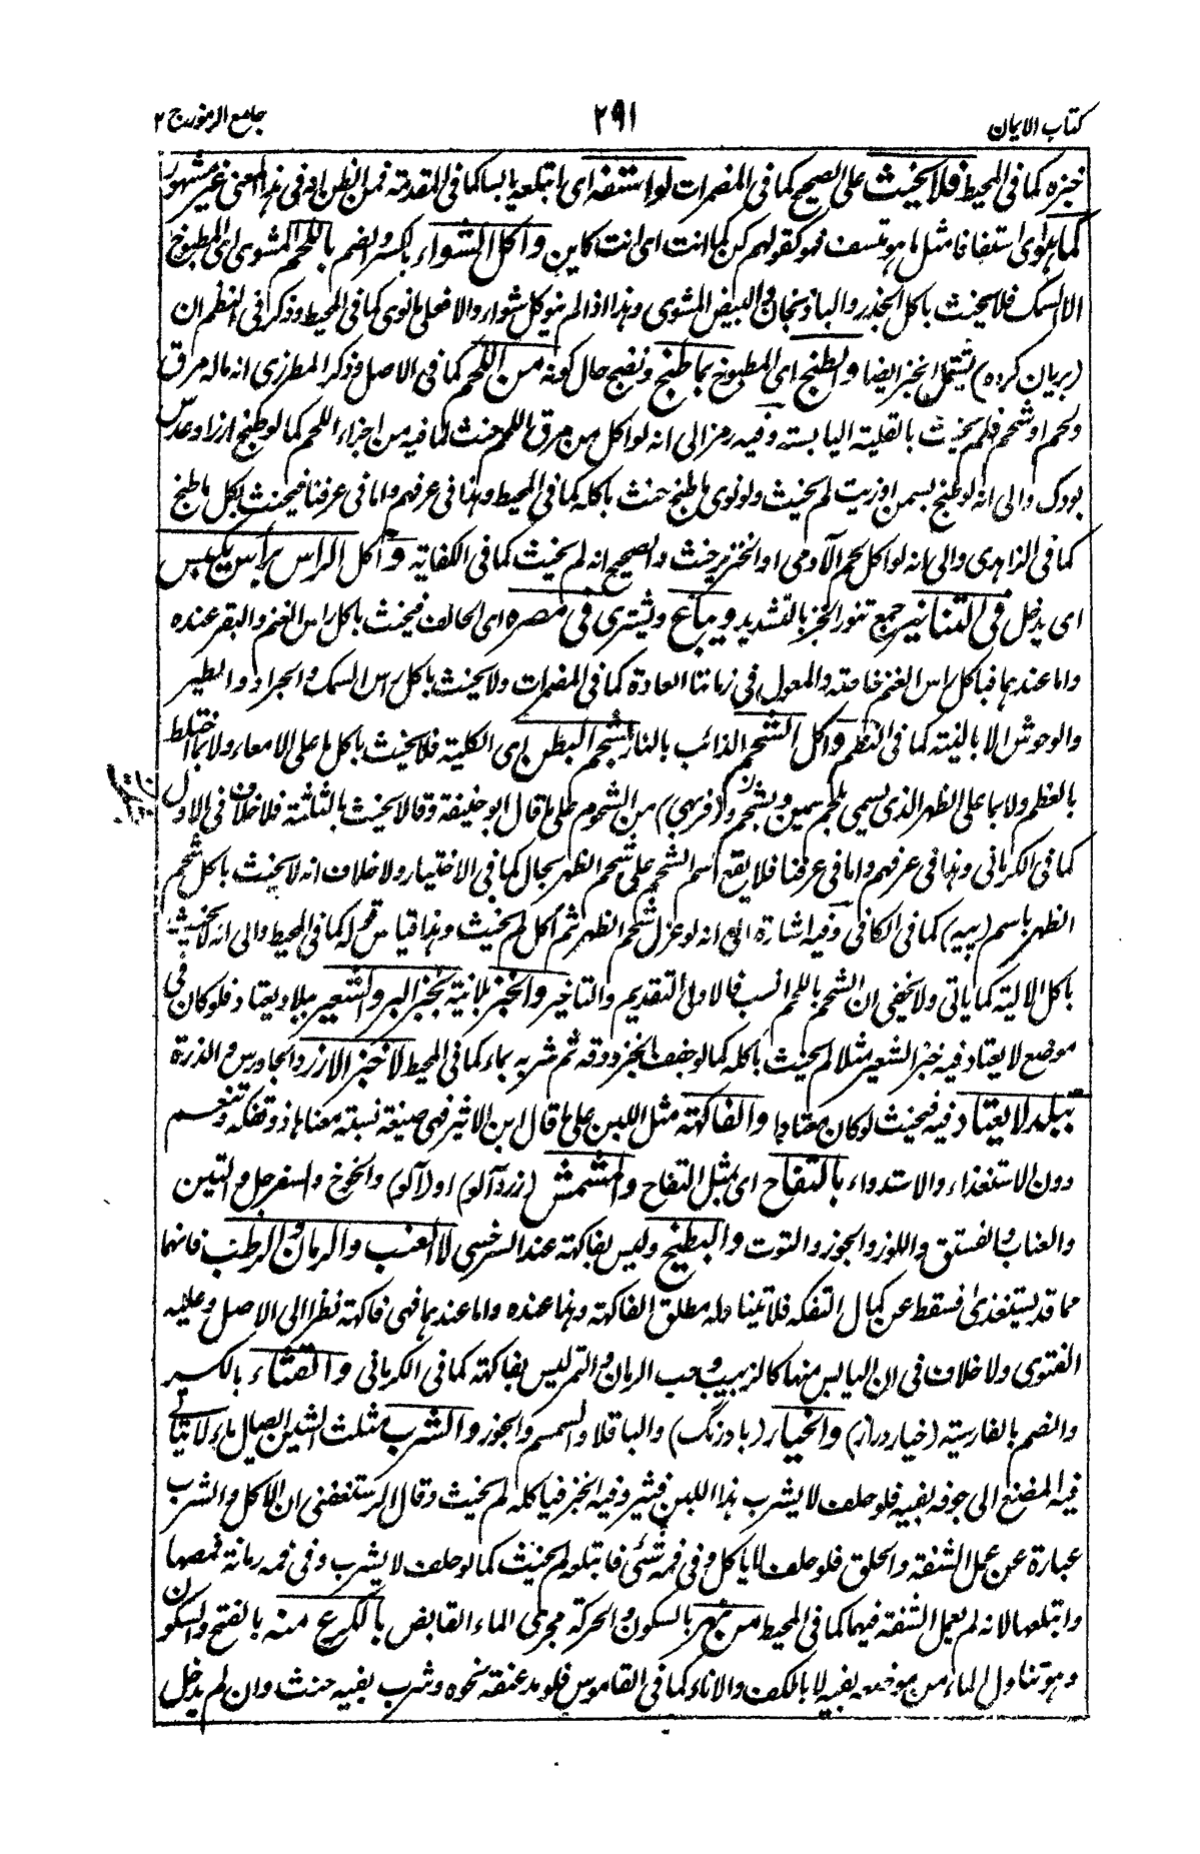 كتاب الايمان
٢٩١
جامع الرموز ج ٢
خبزه كما فى المحيط فلا يحنث على الصحيح كما فى المضمرات لو استفه اى ابتلعه يابسا كما فى المقدمة فمن الظن انه فى هذا المعنى غير مشهور
كما هو اى استفافا مثل ما هو تسف فهو كقولهم كن كما انت اى انت كاين و اكل الشواء بالكسر والضم باللحم المشوى اى المطبوخ
لا السمك فلا يحنث باكل الجذر والباذنجان والبيض المشوى وهذا اذا لم ينو كل شواء والا فعلى ما نوى كما فى المحيط وذكر فى النظم ان
(بريان كرده) يشتمل الخبز ايضا والطبخ اى المطبوخ بما طبخ ونضج حال كونه من اللحم كما فى الاصل وذكر المطرزى انه ماله مرق
ولحم او شحم فلم يحنث بالقلية اليابسة وفيه رمز الى انه لو اكل من مرق اللحم حنث لما فيه من اجزاء اللحم كما لو طبخ ارزا وعدس
بودك والى انه لو طبخ بسمن او زيت لم يحنث ولو نوى ما طبخ حنث باكله كما فى المحيط وهذا فى عرفهم واما فى عرفنا فيحنث بكل ما طبخ
كما فى الزاهدى والى انه لو اكل لحم الآدمى او الخنزير حنث والصحيح انه لم يحنث كما فى الكفاية و اكل الراس براس يكبس
اى يدخل فى التنانير جمع تنور الخبز بالتشديد ويباع ويشترى فى مصره اى الحالف فيحنث باكل راس الغنم والبقر عنده
واما عندهما فباكل راس الغنم خاصة والمعول فى زماننا العادة كما فى المضمرات ولا يحنث باكل راس السمك والجراد والطير
والوحوش الا بالنية كما فى النظم و اكل الشحم الذائب بالنار بشحم البطن اى الكلية فلا يحنث باكل ما على الامعاء ولا بما اختلط
بالعظم ولا بما على الظهر الذى يسمى بلحم سمين وبشحم و(فربهى) من الشحوم على ما قال ابو حنيفة وقالا يحنث بالثلثة فلا خلاف فى الاول
كما فى الكرمانى وهذا فى عرفهم واما فى عرفنا فلا يقع اسم الشحم على شحم الظهر بحال كما فى الاختيار ولا خلاف انه لا يحنث باكل شحم
الظهر باسم (پيه) كما فى الكافى وفيه اشارة الى انه لو عزل شحم الظهر ثم اكل لم يحنث وهذا قياس قوله كما فى المحيط والى انه لا يحنث
باكل الالية كما ياتى ولا يخفى ان الشحم باللحم انسب فالاولى التقديم والتاخير والخبز بلا نية بخبز البر والشعير ببلاد يعتاد فلو كان فى
موضع لا يعتاد فيه خبز الشعير مثلا لم يحنث باكله كما لو جفف الخبز ودقه ثم شربه بماء كما فى المحيط لا خبز الارز والجاورس والذرة
ببلد لا يعتاد فيه فيحنث لو كان معتادا والفاكهة مثل اللبن على ما قال ابن الاثير فهى صيغة نسبة معناها ذو تفكه وتنعم
دون الاستغذاء والاستدواء بالتفاح اى بمثل التفاح والمشمش (زردآلو) او (آلو) والخوخ والسفرجل والتين
والعناب والفستق واللوز والجوز والتوت والبطيخ وليس بفاكهة عند السرخسى لا العنب والرمان والرطب فانها
مما قد يستغذى فسقط عن كمال التفكه فلا تتناوله مطلق الفاكهة وهذا عنده واما عندهما فهى فاكهة نظرا الى الاصل وعليه
الفتوى ولا خلاف فى ان اليابس منها كالزبيب وحب الرمان والتمر ليس بفاكهة كما فى الكرمانى والقثاء بالكسر
والضم بالفارسية (خيار دراز) والخيار (بادرنگ) والباقلا والسمسم والجوز والشرب مثلث الشين ايصال ماء لا يتاتى
فيه المضغ الى جوفه بفيه فلو حلف لا يشرب هذا اللبن فيثرد فيه الخبز فياكله لم يحنث وقال الرستغفنى ان الاكل والشرب
عبارة عن عمل الشفة والحلق فلو حلف لا ياكل وفى فمه شئى فابتلعه لم يحنث كما لو حلف لا يشرب وفى فمه رمانة فمصها
وابتلعها لانه لم يعمل الشفة فيها كما فى المحيط من نهر بالسكون والحركة مجرى الماء الفائض بالكرع منه بالفتح والسكون
وهو تناول الماء من موضعه بفيه لا بالكف والاناء كما فى القاموس فلو مد عنقه نحوه وشرب بفيه حنث وان لم يدخل